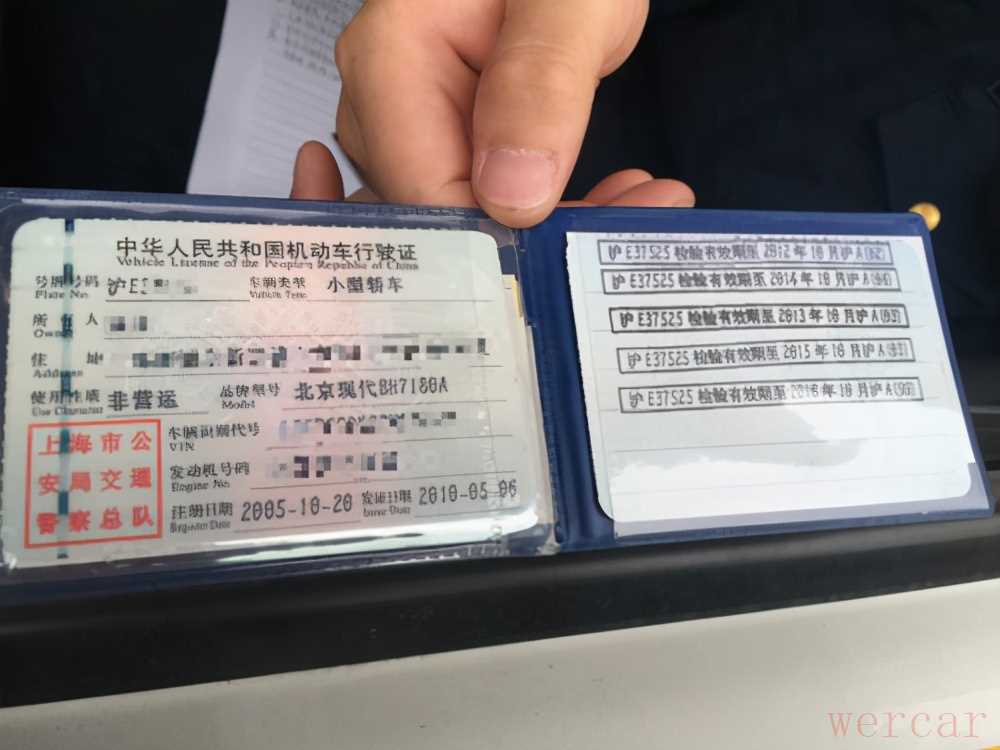 中华人民共和国机动车行驶证
Vehicle License of the People's Republic of China
号牌号码 沪E3 车辆类型 小型轿车
Plate No. Vehicle Type
所有人
Owner
住址
Address
使用性质 非营运 品牌型号 北京现代BH7180A
Use Character Model
上海市公
安局交通
警察总队
车辆识别代号
VIN
发动机号码
Engine No.
注册日期 2005-10-20 发证日期 2010-05-06
Register Date Issue Date
沪E37525 检验有效期至 2012年10月沪A
沪E37525 检验有效期至 2014年10月沪A
沪E37525 检验有效期至 2013年10月沪A
沪E37525 检验有效期至 2015年10月沪A
沪E37525 检验有效期至 2016年10月沪A
wercar